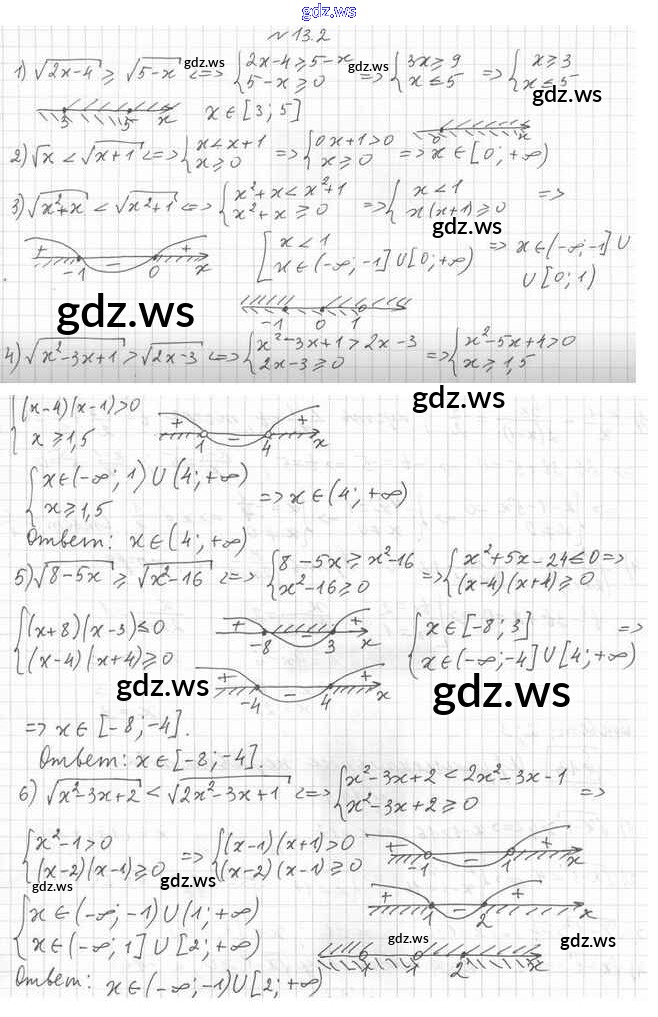 gdz.ws
№ 13.2
1) √(2x-4) ≥ √(5-x) <=> { 2x-4 ≥ 5-x ; 5-x ≥ 0 => { 3x ≥ 9 ; x ≤ 5 => { x ≥ 3 ; x ≤ 5
gdz.ws gdz.ws gdz.ws
3 5 x x ∈ [3; 5] 0 x
2) √x < √(x+1) <=> { x < x+1 ; x ≥ 0 => { 0x+1 > 0 ; x ≥ 0 => x ∈ [0; +∞)
3) √(x²+x) < √(x²+1) <=> { x²+x < x²+1 ; x²+x ≥ 0 => { x < 1 ; x(x+1) ≥ 0 =>
gdz.ws
+ -1 − 0 + x [ x < 1 ; x ∈ (-∞; -1] ∪ [0; +∞) => x ∈ (-∞; -1] ∪
∪ [0; 1)
gdz.ws
-1 0 1
4) √(x²-3x+1) > √(2x-3) <=> { x²-3x+1 > 2x-3 ; 2x-3 ≥ 0 => { x²-5x+4 > 0 ; x ≥ 1,5
gdz.ws
{ (x-4)(x-1) > 0 ; x ≥ 1,5 + 1 − 4 + x
{ x ∈ (-∞; 1) ∪ (4; +∞) ; x ≥ 1,5 => x ∈ (4; +∞)
Ответ: x ∈ (4; +∞)
5) √(8-5x) ≥ √(x²-16) <=> { 8-5x ≥ x²-16 ; x²-16 ≥ 0 => { x²+5x-24 ≤ 0 ; (x-4)(x+4) ≥ 0 =>
{ (x+8)(x-3) ≤ 0 ; (x-4)(x+4) ≥ 0 + -8 − 3 + x { x ∈ [-8; 3] ; x ∈ (-∞; -4] ∪ [4; +∞) =>
+ -4 − 4 + x
gdz.ws gdz.ws
=> x ∈ [-8; -4].
Ответ: x ∈ [-8; -4].
6) √(x²-3x+2) < √(2x²-3x+1) <=> { x²-3x+2 < 2x²-3x-1 ; x²-3x+2 ≥ 0 =>
{ x²-1 > 0 ; (x-2)(x-1) ≥ 0 => { (x-1)(x+1) > 0 ; (x-2)(x-1) ≥ 0 + -1 1 + x
gdz.ws gdz.ws
+ 1 − 2 + x
{ x ∈ (-∞; -1) ∪ (1; +∞) ; x ∈ (-∞; 1] ∪ [2; +∞)
gdz.ws gdz.ws
2 x
Ответ: x ∈ (-∞; -1) ∪ [2; +∞)